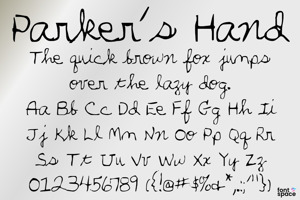 Parker's Hand
The quick brown fox jumps
over the lazy dog.
Aa Bb Cc Dd Ee Ff Gg Hh Ii
Jj Kk Ll Mm Nn Oo Pp Qq Rr
Ss Tt Uu Vv Ww Xx Yy Zz
0123456789 ({!@#$%&*,.:;'"})
font
space